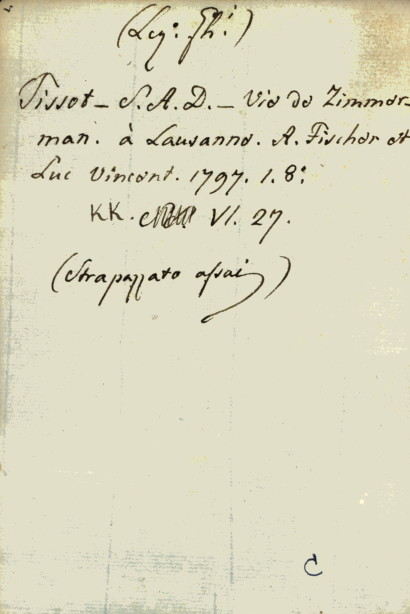 (Leg: Gh:)
Tissot - S. A. D. - Vie de Zimmer-
man. à Lausanne. A. Fischer et
Luc Vincent. 1797. 1. 8:
KK. VI. 27.
(Strapazzato assai)
C